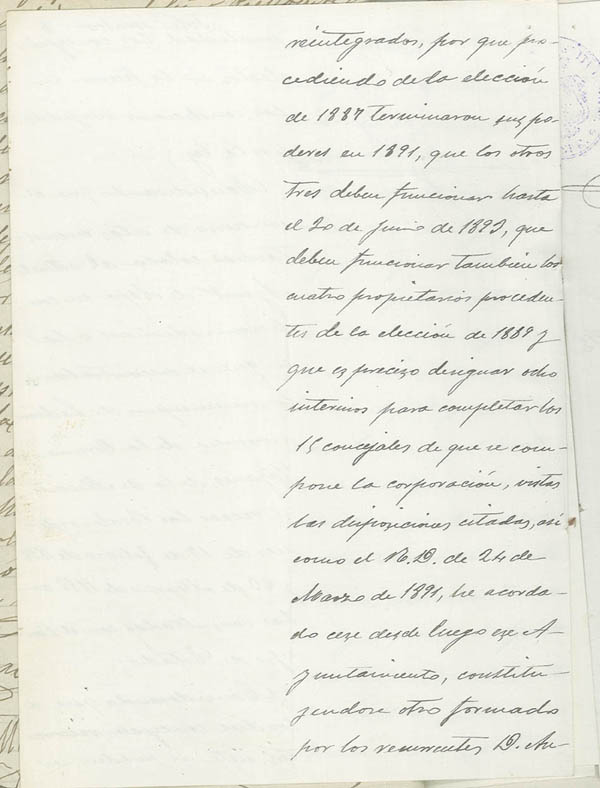 reintegrados, por que pro-
cediendo de la elección
de 1887 terminaron sus po-
deres en 1891, que los otros
tres deben funcionar hasta
el 30 de Junio de 1893, que
deben funcionar también los
cuatro propietarios proceden-
tes de la elección de 1889 y
que es preciso designar ocho
interinos para completar los
15 concejales de que se com-
pone la corporación, vistas
las disposiciones citadas, así
como el R. D. de 24 de
Marzo de 1891, he acorda-
do cese desde luego ese A-
yuntamiento, constitu-
yendose otro formado
por los recurrentes D. An-